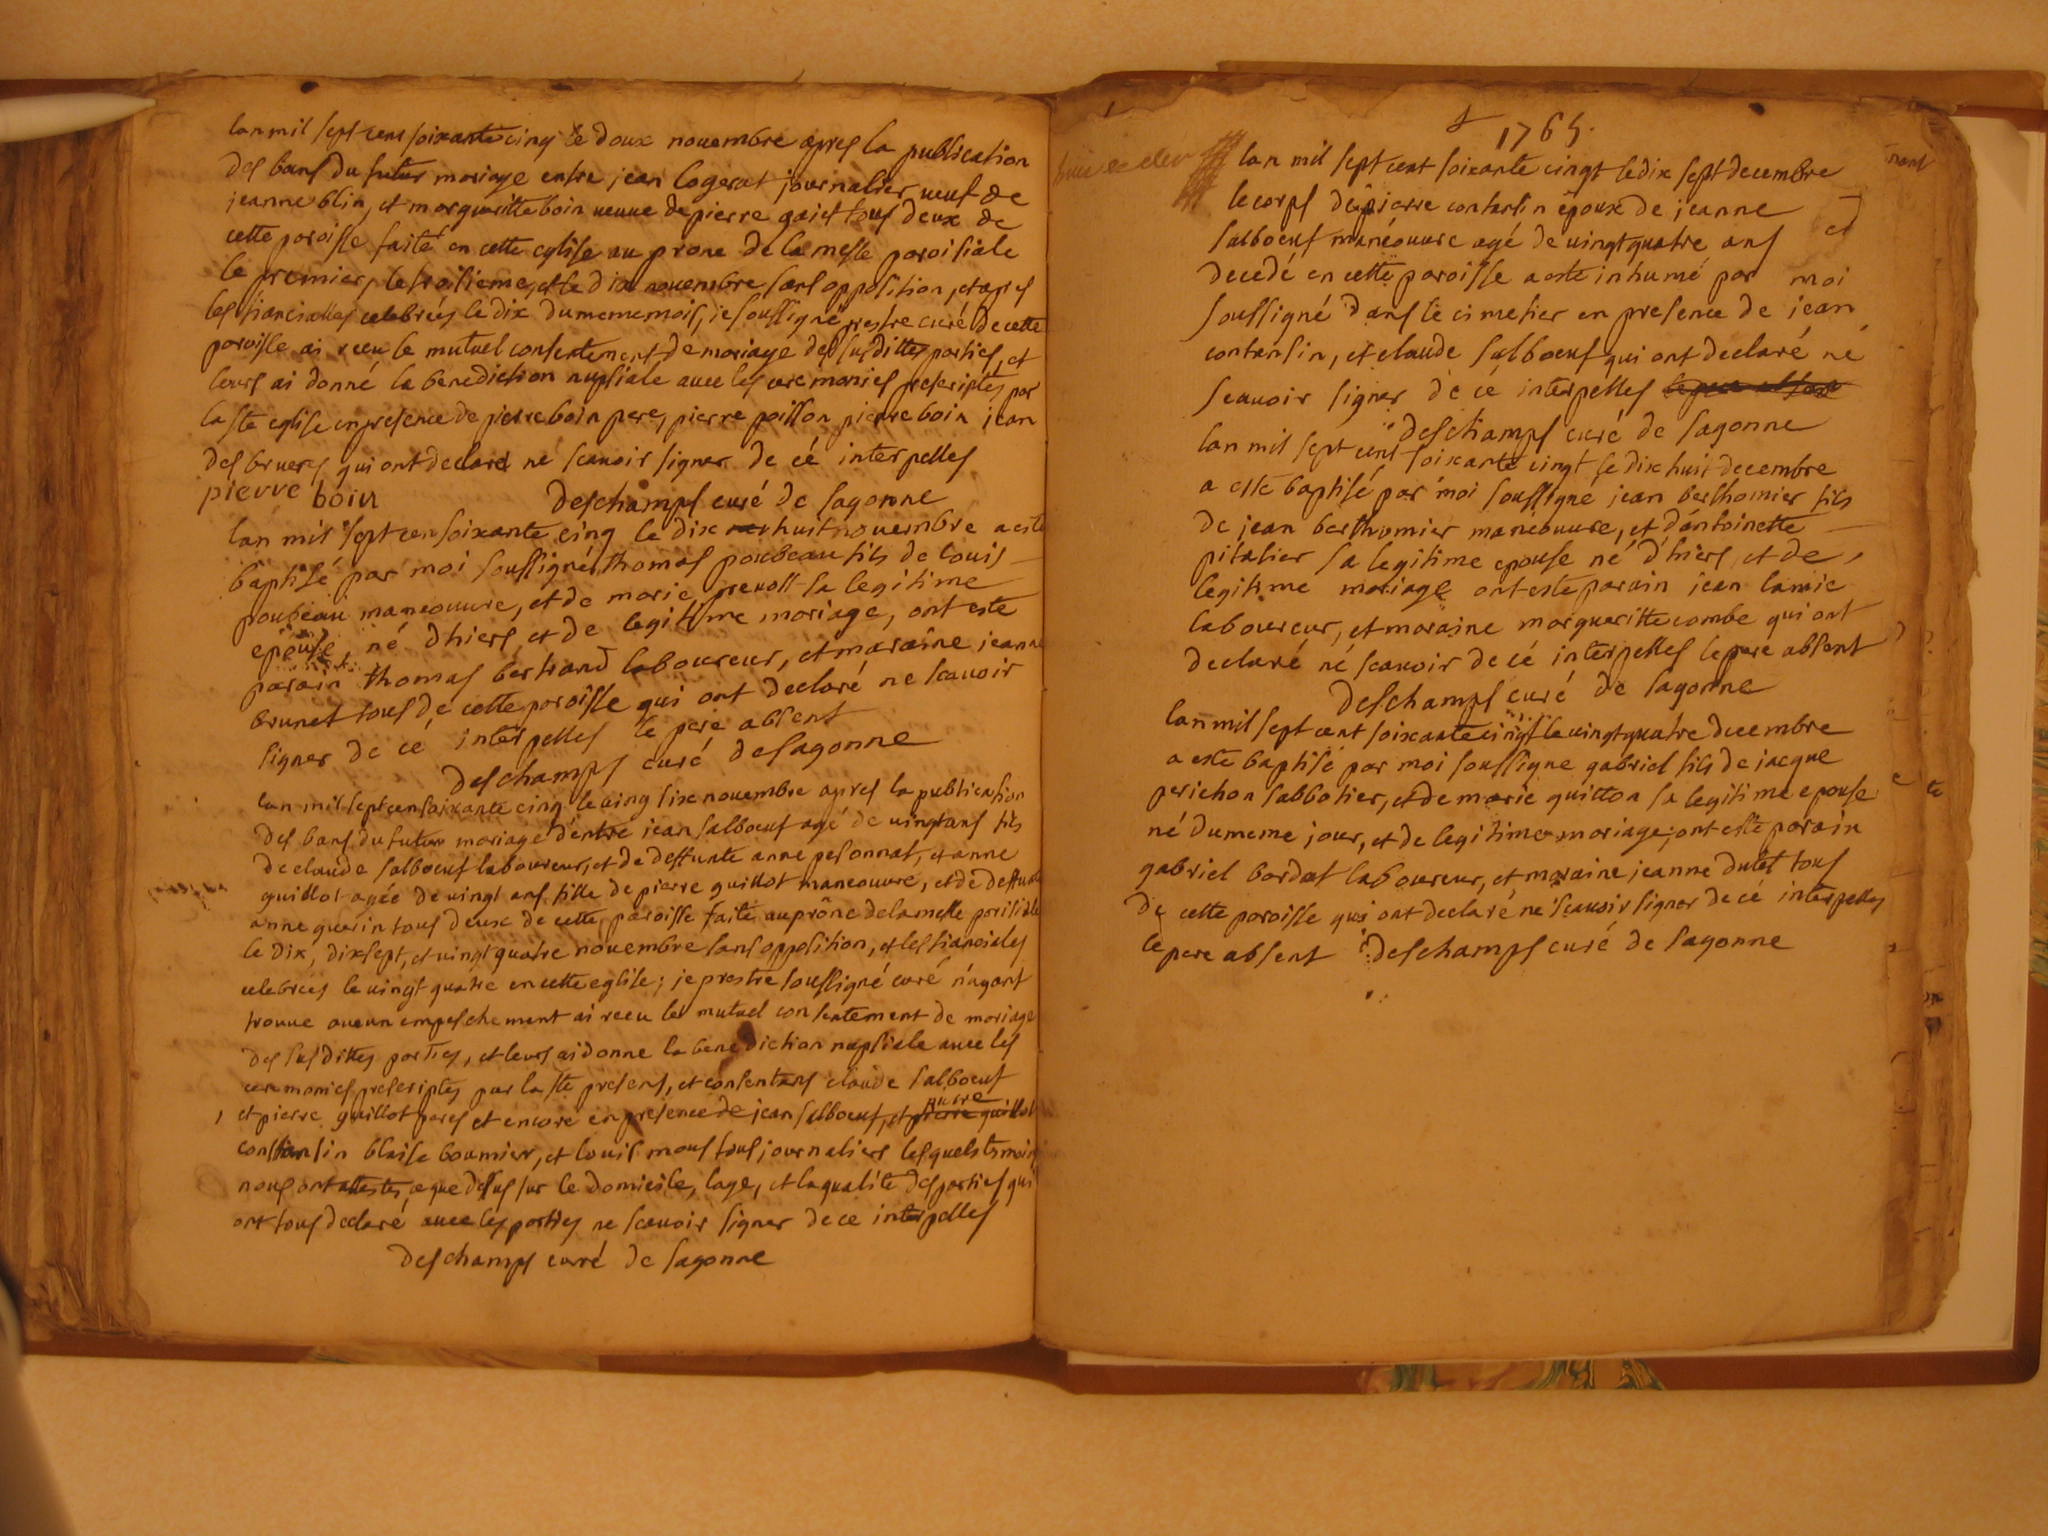 lan mil sept cens soixante cinq le doux nouembre apres la publication
des bans du futur mariage entre jean logerat journalier ueuf de
jeanne blin, et margueritte boin ueuue de pierre gaict tous deux de
cette paroisse faite en cette eglise au prone de la messe paroisiale
le premier, le troisieme, et le dix nouembre sans opposition, et apres
les fiancialles celebrées le dix du meme mois, je soussigné prestre curé de cette
paroisse ai receu le mutuel consentement de mariage des susdittes parties, et
leurs ai donné la benediction nupsiale auec les ceremonies prescriptes par
la ste eglise en presence de pierre boin pere, pierre poisson pierre boin jean
des bruers qui ont declaré né scauoir signer de cé interpelles
pierre boin deschamps curé de sagonne
lan mil sept cen soixante cinq le dix huit nouembre a esté
baptisé par moi soussigné thomas poubeau fils de louis
poubeau maneouure, et de marie preuost sa legitime
epouse né d'hiers, et de legitime mariage, ont este
parain thomas bertrand laboureur, et maraine jeanne
brunet tous de cette paroisse qui ont declaré ne scauoir
signer de cé interpelles le pere absent
deschamps curé de sagonne
lan mil sept cen soixante cinq le uing six nouembre apres la publication
des bans du futur mariage d'entre jean salboeuf agé de uingt ans fils
de claude salboeuf laboureur, et de deffunte anne pesonnat, et anne
guillot agée de uingt ans fille de pierre guillot maneouure, et de deffunte
anne guerin tous deux de cette paroisse faite au prône de la messe parisiale
le dix, dix sept, et uingt quatre nouembre sans opposition, et les fianciales
celebrées le uingt quatre en cette eglise; je prestre soussigné curé n'ayant
trouue aucun empeschement ai receu le mutuel consentement de mariage
des susdittes parties, et leurs ai donne la benediction nupsiale auec les
ceremonies prescriptes par la ste presens, et consentans claude salboeuf
et pierre guillot peres et encore en presence de jean salboeuf, et pierre guillot
constansin blaise boumier, et louis mous tous journaliers lesquels tesmoins
nous ont attestes ce que dessus sur le domicile, lage, et la qualité des parties qui
ont tous declaré auec les parties ne scauoir signer de ce interpelles
deschamps curé de sagonne
1765.
lan mil sept cent soixante cingt le dix sept decembre
le corps de pierre contansin époux de jeanne
salboeuf manéouure agé de uingt quatre ans
decedé en cette paroisse a este inhumé par moi
soussigné dans le cimetier en presence de jean
contansin, et claude salboeuf qui ont declaré né
scauoir signer de cé interpelles
deschamps curé de sagonne
lan mil sept cent soixante cingt le dix huit decembre
a este baptisé par moi soussigné jean berthomier fils
de jean berthomier maneouure, et d'antoinette
pitalier sa legitime epouse né d'hiers, et de
legitime mariage ont este parain jean lamie
laboureur, et maraine margueritte combe qui ont
declaré né scauoir de cé interpelles le pere absent
deschamps curé de sagonne
lan mil sept cent soixante cingt le uingt quatre decembre
a este baptisé par moi soussigne gabriel fils de jacque
perichon sabbotier, et de marie guitton sa legitime epouse
né du meme jour, et de legitime mariage, ont este parain
gabriel bordat laboureur, et maraine jeanne dutet tous
de cette paroisse qui ont declaré ne scauoir signer de cé interpelles
le pere absent deschamps curé de sagonne